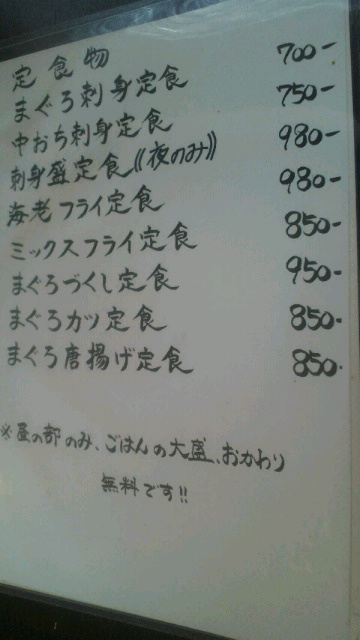 定食物
まぐろ刺身定食 700-
中おち刺身定食 750-
刺身盛定食((夜のみ)) 980-
海老フライ定食 980-
ミックスフライ定食 850-
まぐろづくし定食 950-
まぐろカツ定食 850-
まぐろ唐揚げ定食 850-
※昼の部のみ、ごはんの大盛、おかわり
無料です!!